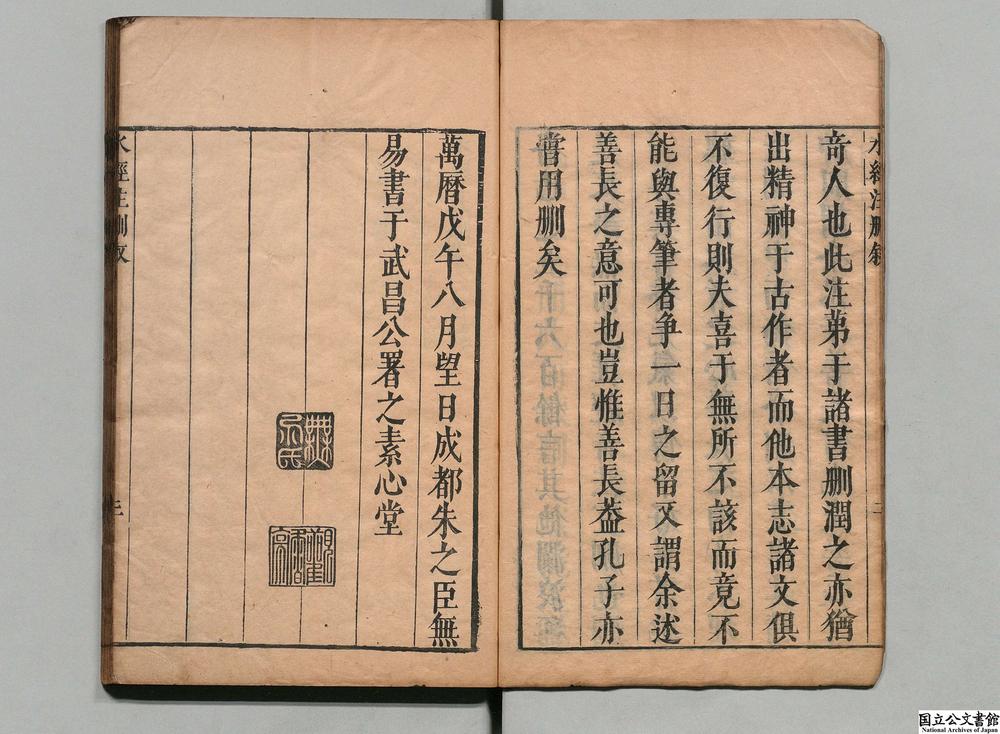 奇人也此注弟于諸書删潤之亦猶
出精神于古作者而他本志諸文俱
不復行則夫喜于無所不該而竟不
能與專筆者争一日之留又謂余述
善長之意可也豈惟善長葢孔子亦
嘗用删矣
萬曆戊午八月望日成都朱之臣無
易書于武昌公署之素心堂
水經注删敘
國立公文書館
National Archives of Japan